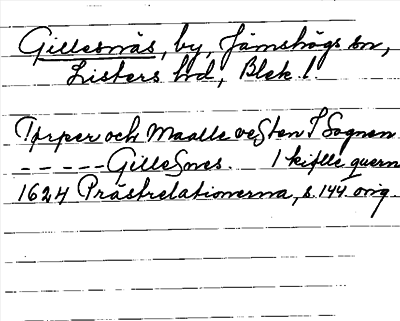 Gillesnäs, by, Jämshögs sn,
Listers hd, Blek. l.
Torper och Maalle veSten I Sognen
-----GilleSnes. 1 kiplle quern
1624 Prästrelationerna, s. 144 orig.